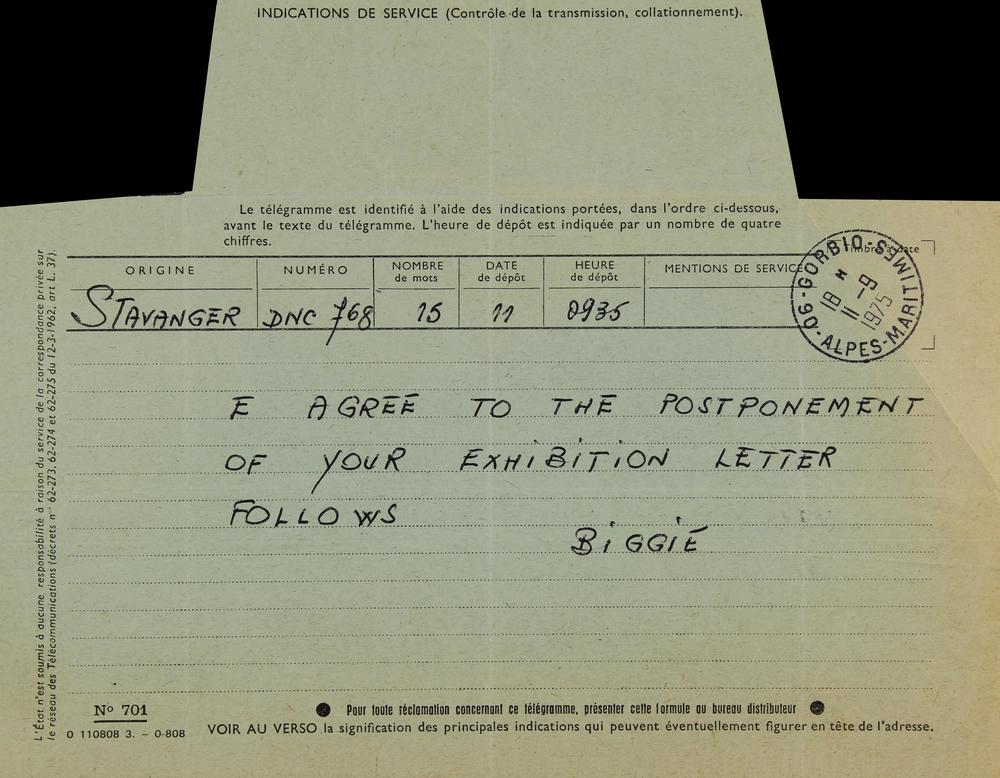 INDICATIONS DE SERVICE (Contrôle de la transmission, collationnement).
Le télégramme est identifié à l'aide des indications portées, dans l'ordre ci-dessous,
avant le texte du télégramme. L'heure de dépôt est indiquée par un nombre de quatre
chiffres.
Timbre à date
ORIGINE NUMÉRO NOMBRE de mots DATE de dépôt HEURE de dépôt MENTIONS DE SERVICE
STAVANGER DNC 768 15 11 0935
06-GORBIO-S ALPES-MARITIMES
18 H
11-9
1975
E AGREE TO THE POSTPONEMENT
OF YOUR EXHIBITION LETTER
FOLLOWS
BIGGIE
L'État n'est soumis à aucune responsabilité à raison du service de la correspondance privée sur
le réseau des Télécommunications (décrets n° 62-273, 62-274 et 62-275 du 12-3-1962, art L. 37).
N° 701
O 110808 3. - O-808
Pour toute réclamation concernant ce télégramme, présenter cette formule au bureau distributeur
VOIR AU VERSO la signification des principales indications qui peuvent éventuellement figurer en tête de l'adresse.